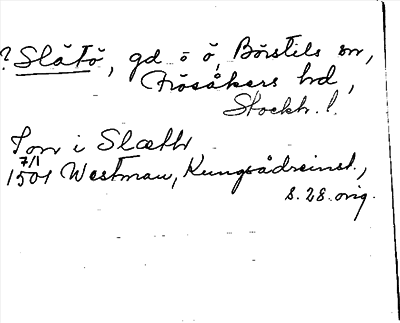 ? Slätö, gd o ö, Börstils sn,
Frösåkers hd,
Stockh. l.
Jon i Slæth
7/1
1501 Westman, Kungsådreinst.,
s. 28 orig.